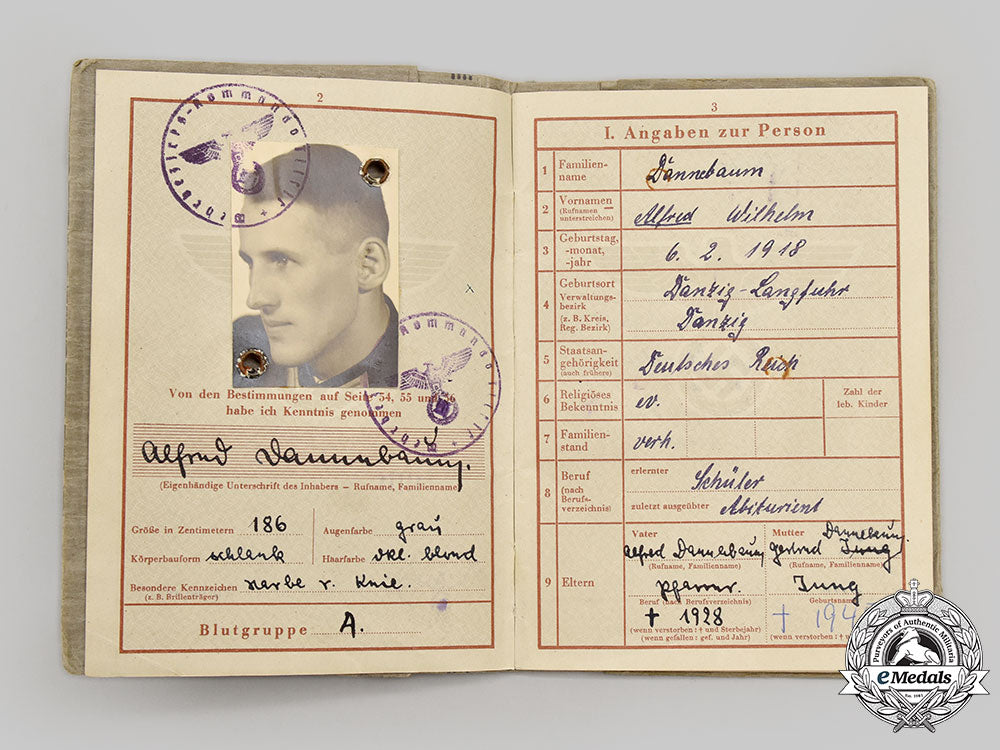 2
Wehrbezirks-Kommando
Von den Bestimmungen auf Seite 54, 55 und 56
habe ich Kenntnis genommen
Wehrbezirks-Kommando
Alfred Dannebaum.
(Eigenhändige Unterschrift des Inhabers – Rufname, Familienname)
Größe in Zentimetern 186 Augenfarbe grau
Körperbauform schlank Haarfarbe dkl. blond
Besondere Kennzeichen Narbe r. Knie.
(z. B. Brillenträger)
Blutgruppe A.
3
I. Angaben zur Person
1 Familien-
name Dannebaum
2 Vornamen
(Rufnamen
unterstreichen) Alfred Wilhelm
3 Geburtstag,
-monat,
-jahr 6. 2. 1918
4 Geburtsort Danzig-Langfuhr
Verwaltungs-
bezirk
(z. B. Kreis,
Reg. Bezirk) Danzig
5 Staatsan-
gehörigkeit
(auch frühere) Deutsches Reich
6 Religiöses
Bekenntnis ev. Zahl der
leb. Kinder
7 Familien-
stand verh.
8 Beruf
(nach
Berufs-
verzeichnis) erlernter Schüler
zuletzt ausgeübter Abiturient
9 Eltern
Vater Mutter Dannebaum.
Alfred Dannebaum Gertrud Jung
(Rufname, Familienname) (Rufname, Familienname)
Pfarrer. Jung
Beruf (nach Berufsverzeichnis) Geburtsname
† 1928 † 194
(wenn verstorben: † und Sterbejahr) (wenn verstorben: †
(wenn gefallen: gef. und Jahr)
Purveyors of Authentic Militaria
eMedals